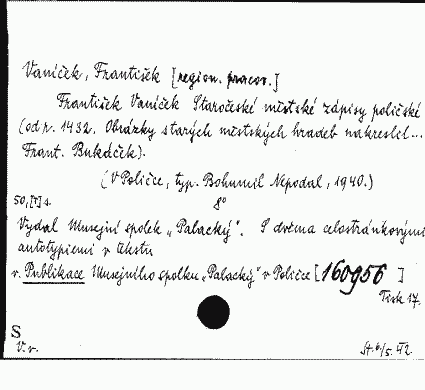 Vaníček, František [region. pracov.]
František Vaníček Staročeské městské zápisy poličské
(od r. 1432. Obrázky starých městských hradeb nakreslil...
Frant. Bukáček).
(V Poličce, typ. Bohumil Nepodal, 1940.)
50, [1] s. 8°
Vydal Musejní spolek „Palacký". S dvěma celostránkovými
autotypiemi v textu
v. Publikace Musejního spolku „Palacký" v Poličce [160956]
Tisk 17.
S
V. v.
St. 6/5. 42